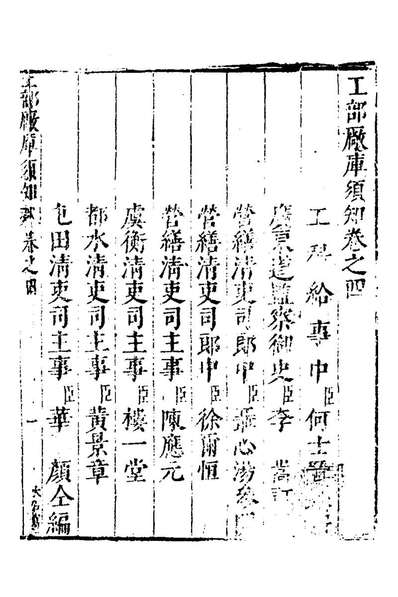 工部廠庫須知卷之四
工科給事中臣何士晉
廣東道監察御史臣李嵩訂
營繕清吏司郎中臣張心湯
營繕清吏司郎中臣徐爾恒
營繕清吏司主事臣陳應元
虞衡清吏司主事臣樓一堂
都水清吏司主事臣黃景章
屯田清吏司主事臣華顏仝編
工部廠庫須知 卷之四
一